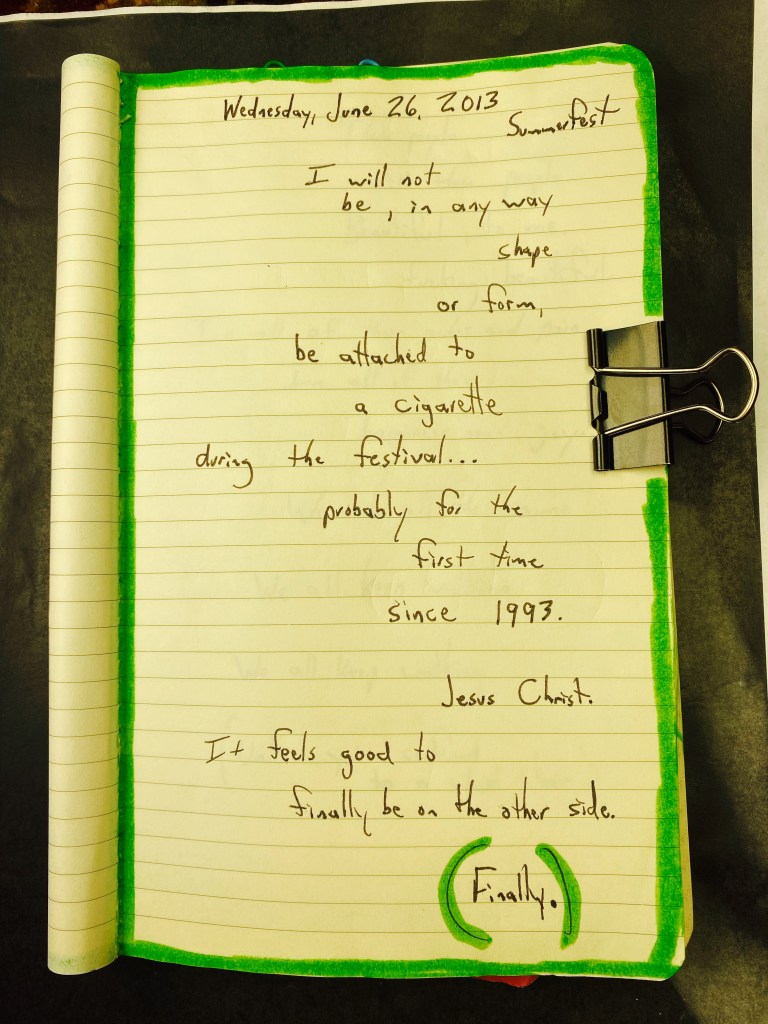 Wednesday, June 26, 2013
Summerfest
I will not
be, in any way
shape
or form,
be attached to
a cigarette
during the festival...
probably for the
first time
since 1993.
Jesus Christ.
It feels good to
finally be on the other side.
(Finally.)